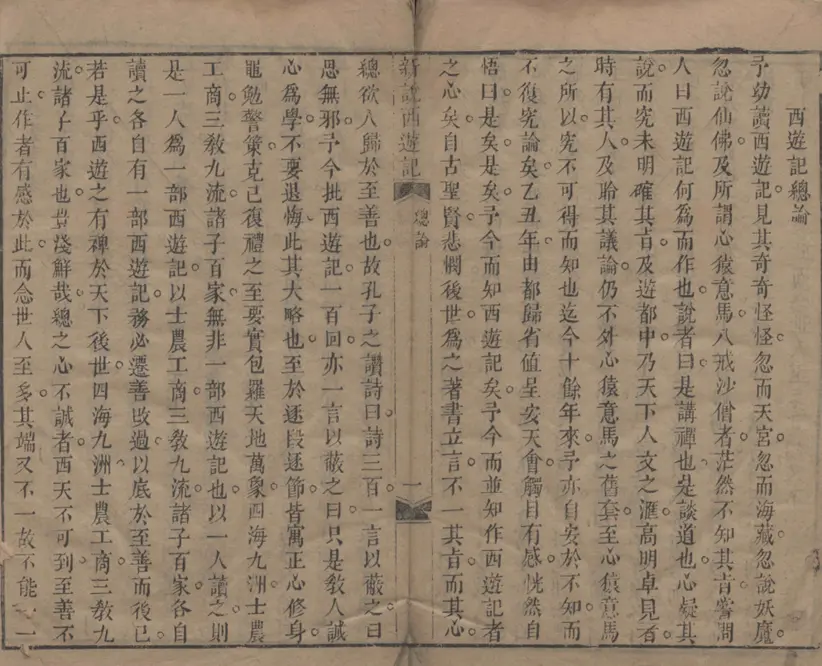 西遊記總論
予幼讀西遊記見其奇奇怪怪忽而天宮忽而海藏忽說妖魔
忽說仙佛及所謂心猿意馬八戒沙僧者茫然不知其旨嘗問
人曰西遊記何爲而作也說者曰是講禪也是談道也心疑其
說而究未明確其旨及遊都中乃天下人文之滙高明卓見者
時有其人及聆其議論仍不外心猿意馬之舊套至心猿意馬
之所以究不可得而知也迄今十餘年來予亦自安於不知而
不復究論矣乙丑年由都歸省值呈安天會觸目有感恍然自
悟曰是矣是矣予今而知西遊記矣予今而並知作西遊記者
之心矣自古聖賢悲憫後世爲之著書立言不一其旨而其心
新說西遊記 總論 一
總欲人歸於至善也故孔子之讚詩曰詩三百一言以蔽之曰
思無邪予今批西遊記一百回亦一言以蔽之曰只是教人誠
心爲學不要退悔此其大略也至於逐段逐節皆寓正心修身
黽勉警策克己復禮之至要實包羅天地萬象四海九洲士農
工商三教九流諸子百家無非一部西遊記也以一人讀之則
是一人爲一部西遊記以士農工商三教九流諸子百家各自
讀之各自有一部西遊記務必遷善改過以底於至善而後已
若是乎西遊之有裨於天下後世四海九洲士農工商三教九
流諸子百家也豈淺鮮哉總之心不誠者西天不可到至善不
可止作者有感於此而念世人至多其端又不一故不能一一